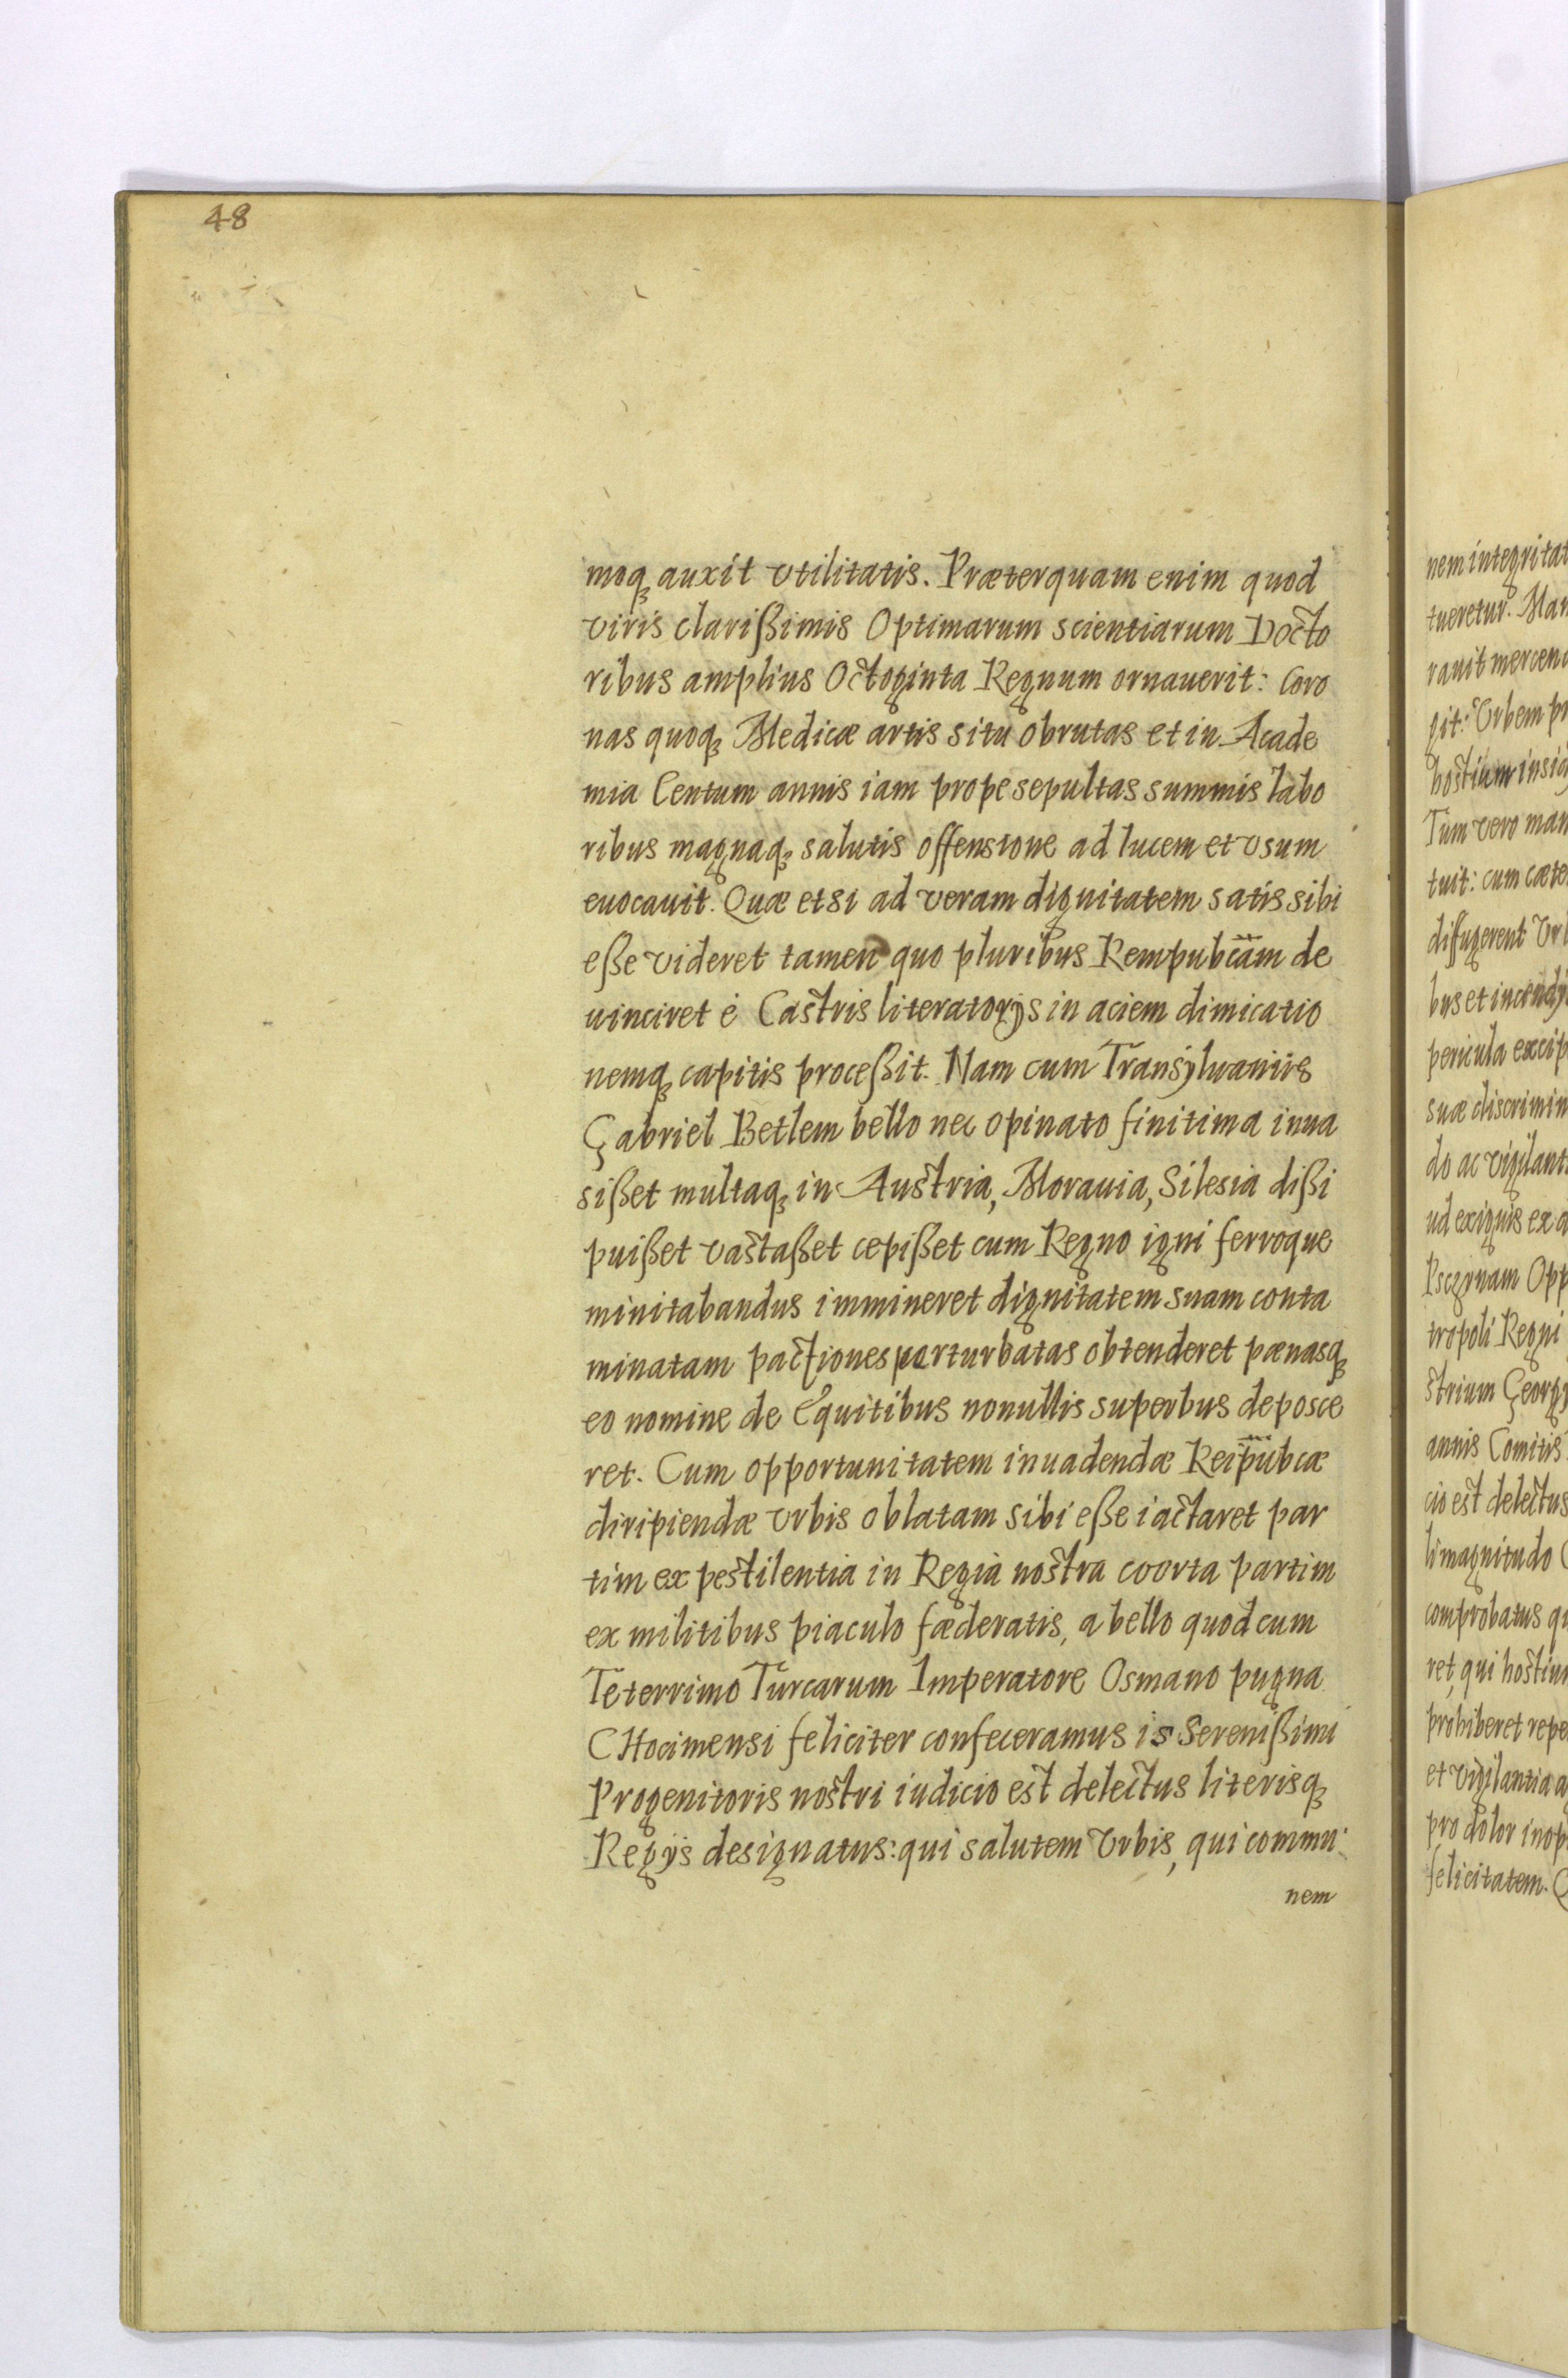 48
moq auxit vtilitatis. Præterquam enim quod
viris clarißimis Optimarum scientiarum Docto
ribus amplius Octoginta Regnum ornauerit: Coro
nas quoq Medicæ artis situ obrutas et in Acade
mia Centum annis iam prope sepultas summis labo
ribus magnaq salutis offensione ad lucem et vsum
euocauit. Quæ etsi ad veram dignitatem satis sibi
eße videret tamen quo pluribus Rempubcam de
uinciret é Castris literatorijs in aciem dimicatio
nemq capitis proceßit. Nam cum Transÿluaniis
Gabriel Betlem bello nec opinato finitima inua
sißet multaq in Austria, Morauia, Silesia dißi
puißet vastaßet cepißet cum Regno igni ferroque
minitabandus immineret dignitatem suam conta
minatam pactiones perturbatas obtenderet pænasq
eo nomine de Equitibus nonullis superbus deposce
ret. Cum opportunitatem inuadendæ Reipubcæ
diripiendæ vrbis oblatam sibi eße iactaret par
tim ex pestilentia in Regia nostra coorta partim
ex militibus piaculo fæderatis, a bello quod cum
Teterrimo Turcarum Imperatore Osmano pugna
CHocimensi feliciter confeceramus is Serenißimi
Progenitoris nostri iudicio est delectus literisq
Regÿs designatus: qui salutem Vrbis, qui commu
nem
nem integritat
tueretur. Man
rauit mercen
git: Vrbem pr
hostium insid
Tum vero man
tuit: cum cæte
diffugerent Vr
bus et incendij
pericula excip
suæ discrimin
do ac vigilant
ud exiguis ex a
Psczynam Opp
tropoli Regni
strium Georgy
annis Comitis
cio est delectus
li magnitudo
comprobatus qu
ret, qui hostiu
prohiberet repe
et vigilantia a
pro dolor inop
felicitatem. Q